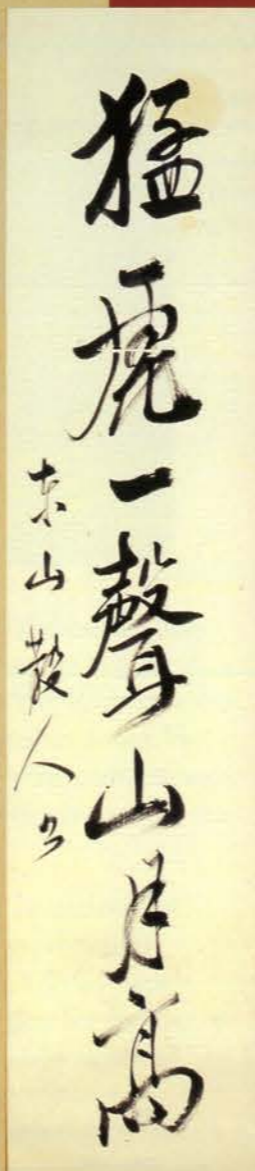 猛虎一聲山月高
東山散人書